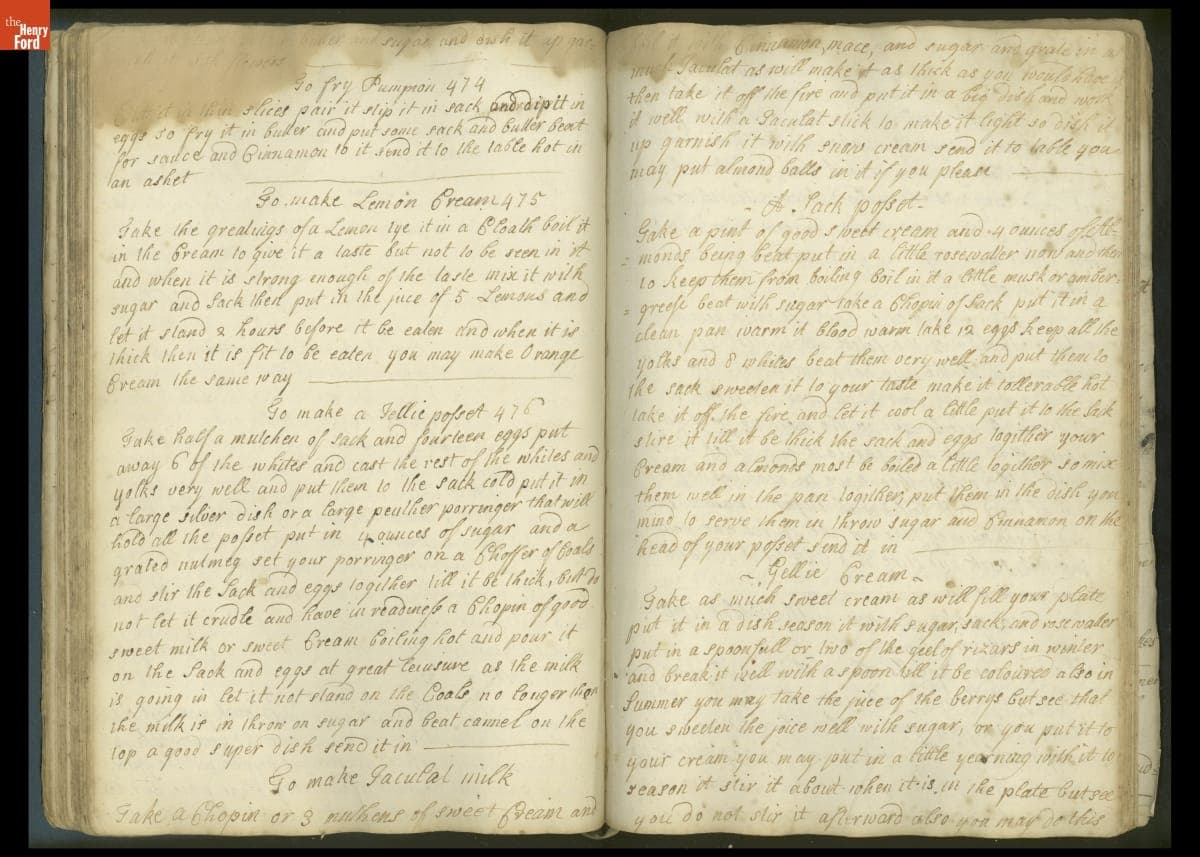 the
Henry
Ford
butter and sugar and dish it up gar-
To fry Pumpion 474
Cut it in thin slices pair it slip it in sack and dip it in
eggs so fry it in butter and put some sack and butter beat
for sauce and Cinnamon to it send it to the table hot in
an ashet
To make Lemon Cream 475
Take the greatings of a Lemon tye it in a Cloath boil it
in the Cream to give it a taste but not to be seen in it
and when it is strong enough of the taste mix it with
sugar and Sack then put in the juce of 5 Lemons and
let it stand 2 hours before it be eaten and when it is
thick then it is fit to be eaten you may make Orange
Cream the same way
To make a Jellie posset 476
Take half a mutchen of sack and fourteen eggs put
away 6 of the whites and cast the rest of the whites and
yolks very well and put them to the sack cold put it in
a large silver dish or a large peuther porringer that will
hold all the posset put in 4 ounces of sugar and a
grated nutmeg set your porringer on a Choffer of Coals
and stir the Sack and eggs togither till it be thick, but do
not let it crudle and have in readiness a Chopin of good
sweet milk or sweet Cream boiling hot and pour it
on the Sack and eggs at great leiusure as the milk
is going in let it not stand on the Coals no longer than
the milk is in throw on sugar and beat cannel on the
top a good super dish send it in
To make Jaculat milk
Take a Chopin or 3 mutkens of sweet Cream and
boil it with Cinnamon, mace, and sugar and grate in as
much Jaculat as will make it as thick as you would have it
then take it off the fire and put it in a big dish and work
it well with a Jaculat stick to make it light so dish it
up garnish it with snow cream send it to table you
may put almond balls in it if you please
A Sack posset
Take a pint of good sweet cream and 4 ounces of Al-
=monds being beat put in a little rosewater now and then
to keep them from boiling boil in it a little musk or amber-
=greese beat with sugar take a Chopin of Sack put it in a
clean pan warm it blood warm take 12 eggs keep all the
yolks and 8 whites beat them very well and put them to
the sack sweeten it to your taste make it tollerable hot
take it off the fire and let it cool a little put it to the Sack
stire it till it be thick the sack and eggs togither your
Cream and almonds most be boiled a little togither so mix
them well in the pan togither, put them in the dish you
mind to serve them in throw sugar and Cinnamon on the
head of your posset send it in
Gellie Cream
Take as much sweet cream as will fill your plate
put it in a dish season it with sugar, sack, and rosewater
put in a spoonfull or two of the geel of rizars in winter
and break it well with a spoon till it be coloured also in
Summer you may take the juce of the berrys but see that
you sweeten the joice well with sugar, or you put it to
your cream you may put in a little yearning with it to
season it stir it about when it is in the plate but see
you do not stir it afterward also you may do this